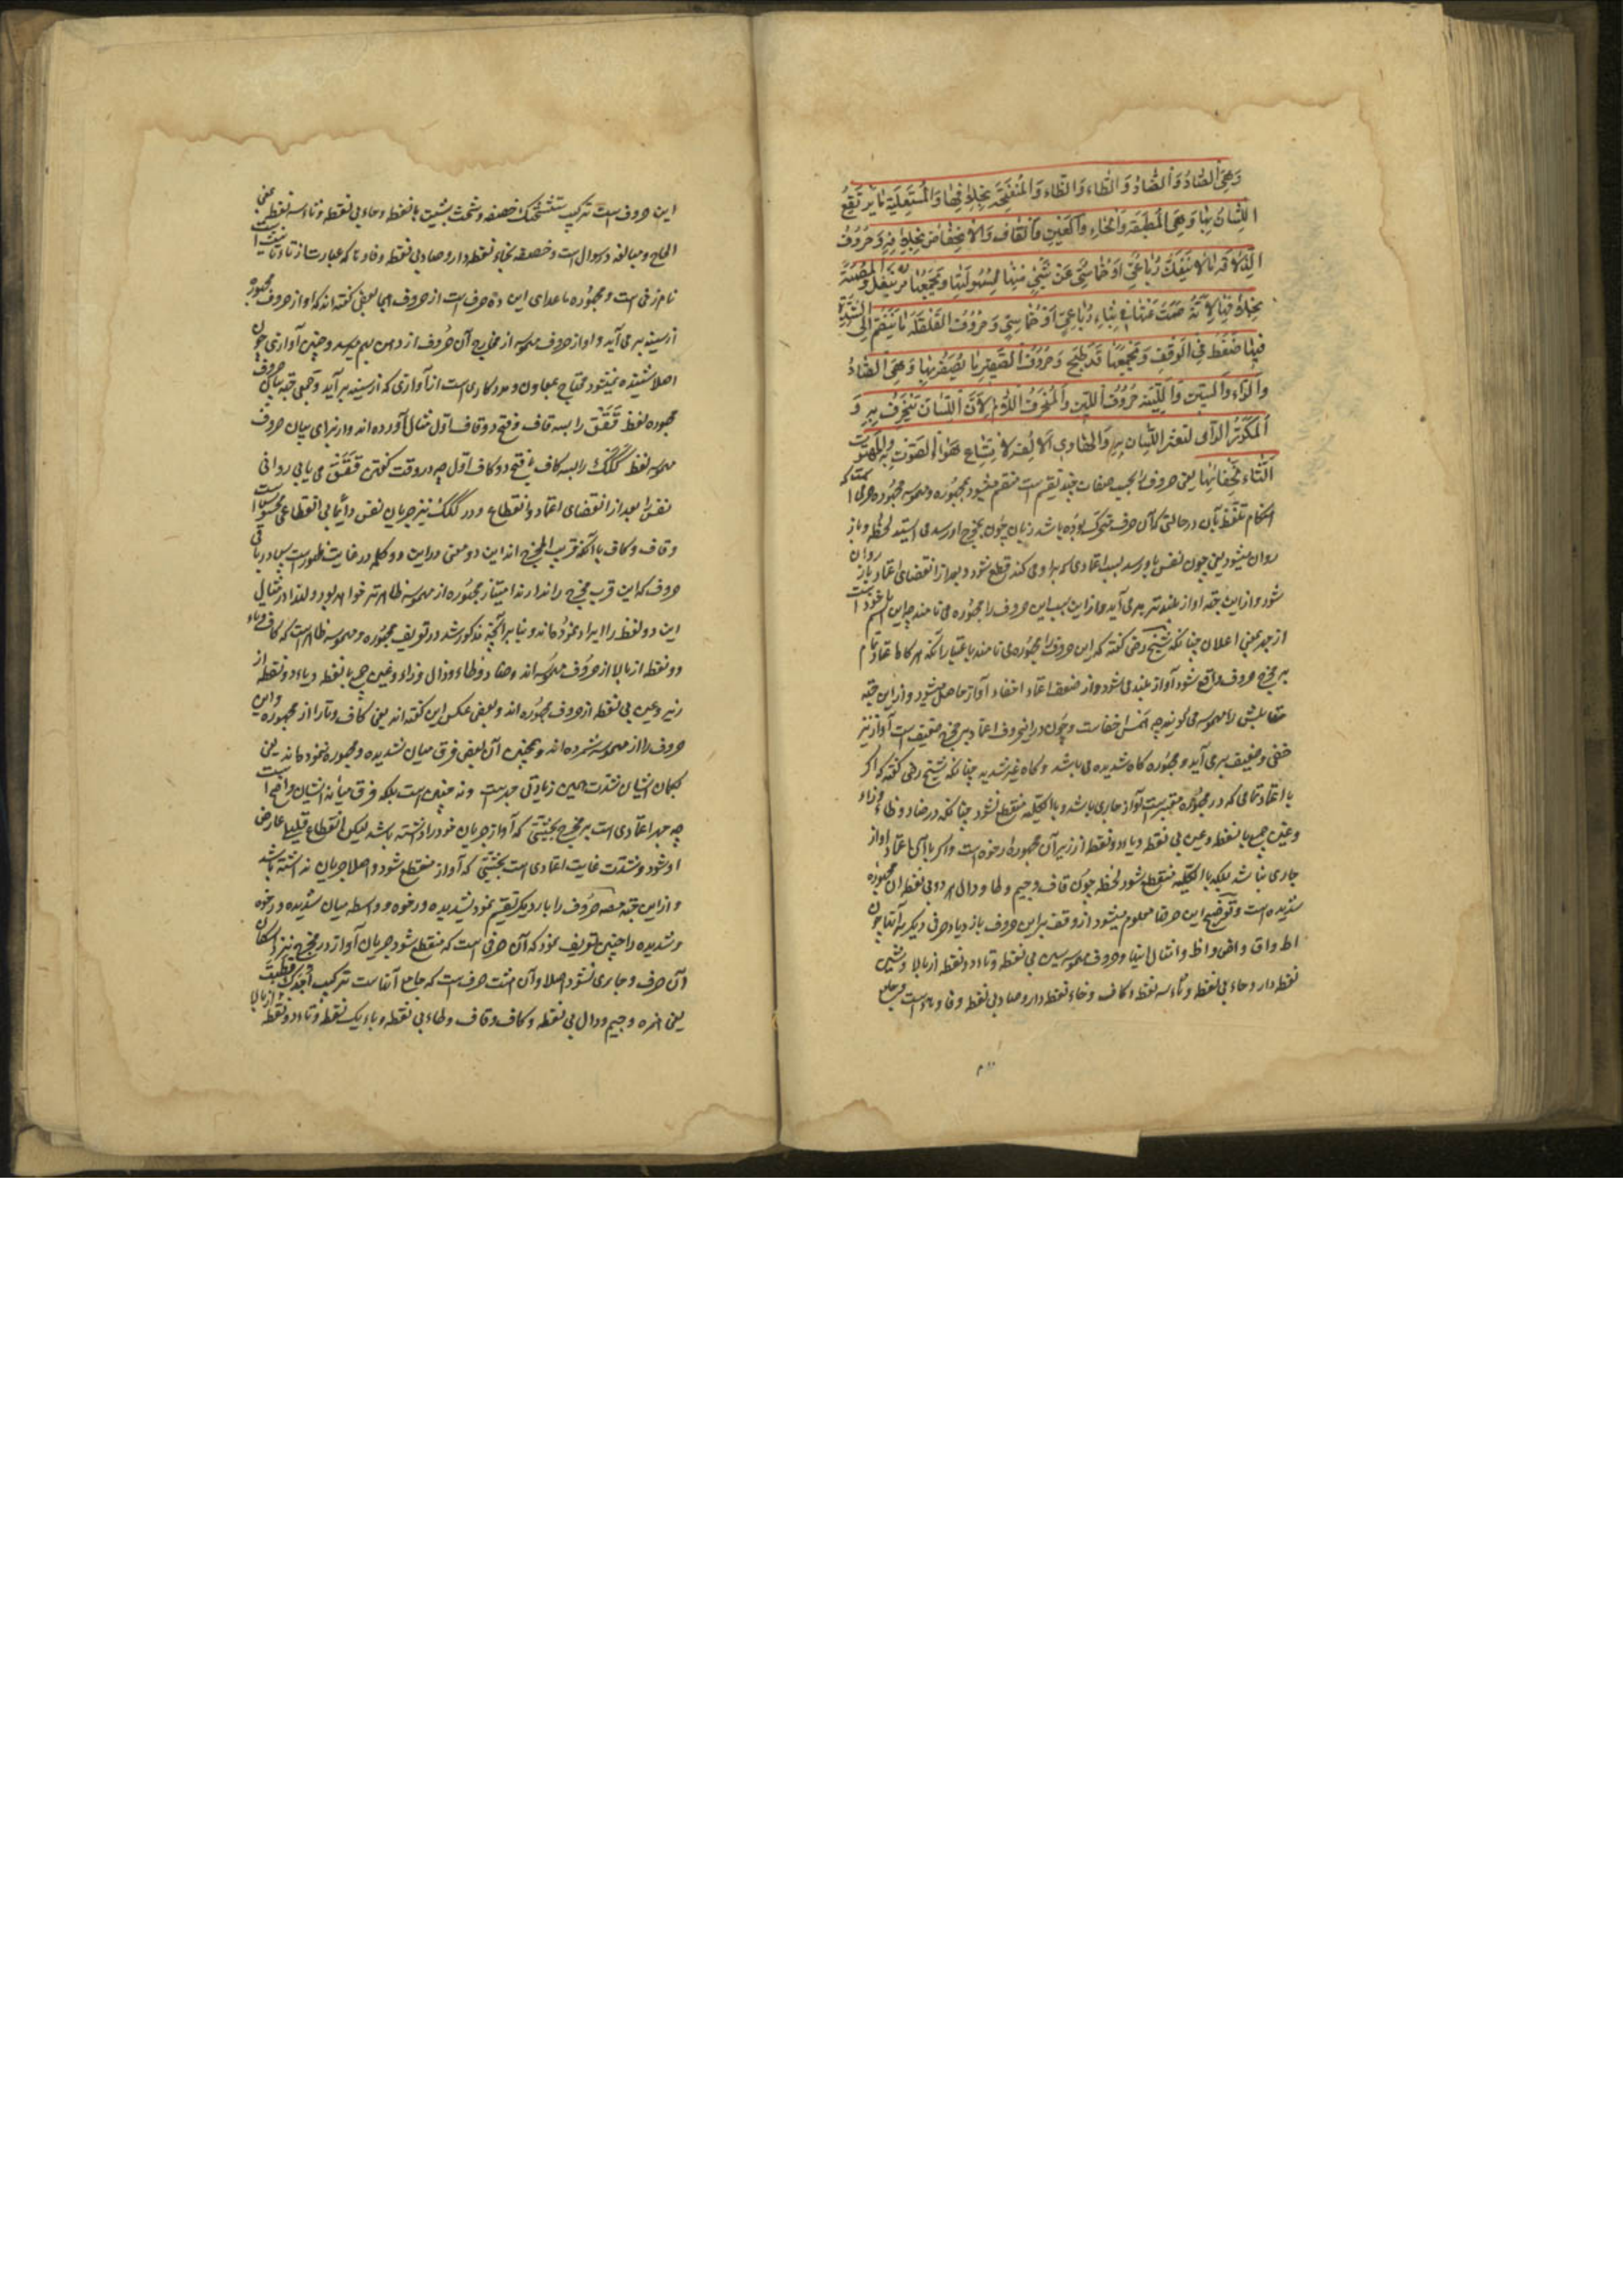 وَهِيَ الصَّادُ وَالضَّادُ وَالطَّاءُ وَالظَّاءُ وَالْمُنْفَتِحَةُ بِخِلَافِهَا وَالْمُسْتَعْلِيَةُ مَا يَرْتَفِعُ
اللِّسَانُ بِهَا وَهِيَ الْمُطْبَقَةُ وَالْخَاءُ وَالْغَيْنُ وَالْقَافُ وَالْاِنْخِفَاضُ بِخِلَافِهِ وَحُرُوفُ
الذَّلَاقَةِ مَا لَا يَنْفَكُّ رُبَاعِيٌّ اَوْ خُمَاسِيٌّ عَنْ شَيْءٍ مِنْهَا لِسُهُولَتِهَا وَيَجْمَعُهَا مُرْ بِنَفَلٍ وَالْمُصْمَتَةُ
بِخِلَافِهَا لِاَنَّهُ صُمِتَ عَنْهَا فِي بِنَاءِ رُبَاعِيٍّ اَوْ خُمَاسِيٍّ وَحُرُوفُ الْقَلْقَلَةِ مَا يَنْضَمُّ اِلَى الشِّدَّةِ
فِيهَا ضَغْطٌ فِي الْوَقْفِ وَيَجْمَعُهَا قَدْ طُبِجَ وَحُرُوفُ الصَّفِيرِ مَا يُصْفَرُ بِهَا وَهِيَ الصَّادُ
وَالزَّاءُ وَالسِّينُ وَاللَّيِّنَةُ حُرُوفُ اللِّينِ وَالْمُنْحَرِفُ اللَّامُ لِاَنَّ اللِّسَانَ يَنْحَرِفُ بِهِ وَ
الْمُكَرَّرُ الرَّاءُ لتعثر اللِّسَانِ بِهِ وَالْهَاوِي الْاَلِفُ لِاتِّسَاعِ هَوَاءِ الصَّوْتِ بِهِ وَالْمَهْتُوتُ
التَّاءُ لِخَفَائِهَا یعنی حروف را بحسب صفات چند تقسیم است منقسم میشود بمجهوره و مهموسه مجهوره حرفی است که
هنگام تلفّظ بآن در حالتی که آن حرف متحرک بوده باشد زبان چون بمخرج او رسد می ایستد لحظه و باز
روان میشود یعنی چون نفس باو رسد بسبب اعتمادی که بر او می کند قطع شود و بعد از انقضای اعتماد باز روان
شود و از این جهة آواز بلندتر بر می آید و از این سبب این حروف را مجهوره می نامند چه این اسم ماخوذ است
از جهر بمعنی اعلان چنانکه شیخ رضی گفته که این حروف را مجهوره می نامند باعتبار آنکه هر گاه اعتماد تمام
بر مخرج حروف واقع شود آواز بلند می شود و از ضعف اعتماد اخفاء آواز حاصل میشود و از این جهة
مقابلش را مهموسه می گویند چه همس اخفاست و چون در این حروف اعتماد بر مخرج ضعیف است آواز نیز
خفی و ضعیف بر می آید و مجهوره گاه شدیده می باشد و گاه غیر شدیده چنانکه شیخ رضی گفته که اگر
با اعتماد تمامی که در مجهوره معتبر است آواز جاری باشد و بالکلیه منقطع نشود چنانکه در ضاد و ظاء و زاء
و غین با نقطه و عین بی نقطه و یاء دو نقطه از زیر آن مجهوره رخوه است و اگر با آن اعتماد آواز
جاری نباشد بلکه بالکلیه منقطع شود لحظه چون قاف و جیم و طا و دال هر دو بی نقطه آن مجهوره
شدیده است و توضیح این حرفها معلوم میشود از وقف بر این حروف بازدیاد حرفی دیگر بر آنها چون
اط و اق و اض و اظ و امثال اینها و حروف مهموسه سین بی نقطه و تاء دو نقطه از بالا و شین
نقطه دار و حاء بی نقطه و ثاء سه نقطه و کاف و خاء نقطه دار و صاد بی نقطه و فا و هاء است و جامع
این حروف است ترکیب ستشحثک خصفه و شحث بشین با نقطه و حاء بی نقطه و ثاء سه نقطه بمعنی
الحاح و مبالغه در سوال است و خصفه بخاء نقطه دار و صاد بی نقطه و فا و تا که عبارت از تاء تانیث است
نام زنی است و مجهوره ماعدای این ده حرف است از حروف هجا بعضی گفته اند که آواز حروف مجهوره
از سینه بر می آید و آواز حروف مهموسه از مخارج آن حروف از دهن بهم میرسد و چنین آوازی چون
اصلا شنیده نمیشود محتاج بمعاون و مددکاری است از آوازی که از سینه بر آید و جمعی جهة بیان حروف
مجهوره لفظ قَقَقْ را بسه قاف و فتح دو قاف اول مثال آورده اند و از برای بیان حروف
مهموسه لفظ کَکَکْ را بسه کاف با فتح دو کاف اول چه در وقت گفتن قَقَقْ می یابی روانی
نفس را بعد از انقضای اعتماد و انقطاع و در ککک نیز جریان نفس دائما بی انقطاعی محسوس است
و قاف و کاف با آنکه قریب المخرج اند این دو معنی در این دو کلمه در غایت ظهور است پس در باقی
حروف که این قرب مخرج را ندارند امتیاز مجهوره از مهموسه ظاهرتر خواهد بود و لهذا در مثال
این دو لفظ را ایراد نموده اند و بنا بر آنچه مذکور شد در تعریف مجهوره و مهموسه ظاهر است که کاف و تاء
دو نقطه از بالا از حروف مهموسه اند و ضاد و ظاء و ذال و زاء و غین با نقطه و یاء دو نقطه از
زیر و عین بی نقطه از حروف مجهوره اند و بعضی عکس این گفته اند یعنی کاف و تا را از مجهوره و این
حروف را از مهموسه شمرده اند و همچنین آن بعض فرق میان شدیده و مجهوره ننموده اند یعنی
بگمان ایشان شدت همین زیادتی جهر است و نه چنین است بلکه فرق میانه ایشان واضح است
چه جهر اعتمادی است بر مخرج بحیثیتی که آواز جریان خود را داشته باشد لیکن انقطاع قلیلی عارض
او شود و شدت غایت اعتمادی است بحیثیتی که آواز منقطع شود و اصلا جریان نداشته باشد
و از این جهة مصنف حروف را بار دیگر تقسیم نمود بشدیده و رخوه و واسطه میان شدیده و رخوه
و شدیده را چنین تعریف نمود که آن حرفی است که منقطع شود جریان آواز در مخرج نزد اسکان
آن حرف و جاری نشود اصلا و آن هشت حرف است که جامع آنهاست ترکیب اَجِدُكَ قَطَبْتَ
یعنی همزه و جیم و دال بی نقطه و کاف و قاف و طاء بی نقطه و باء یک نقطه و تاء دو نقطه از بالا